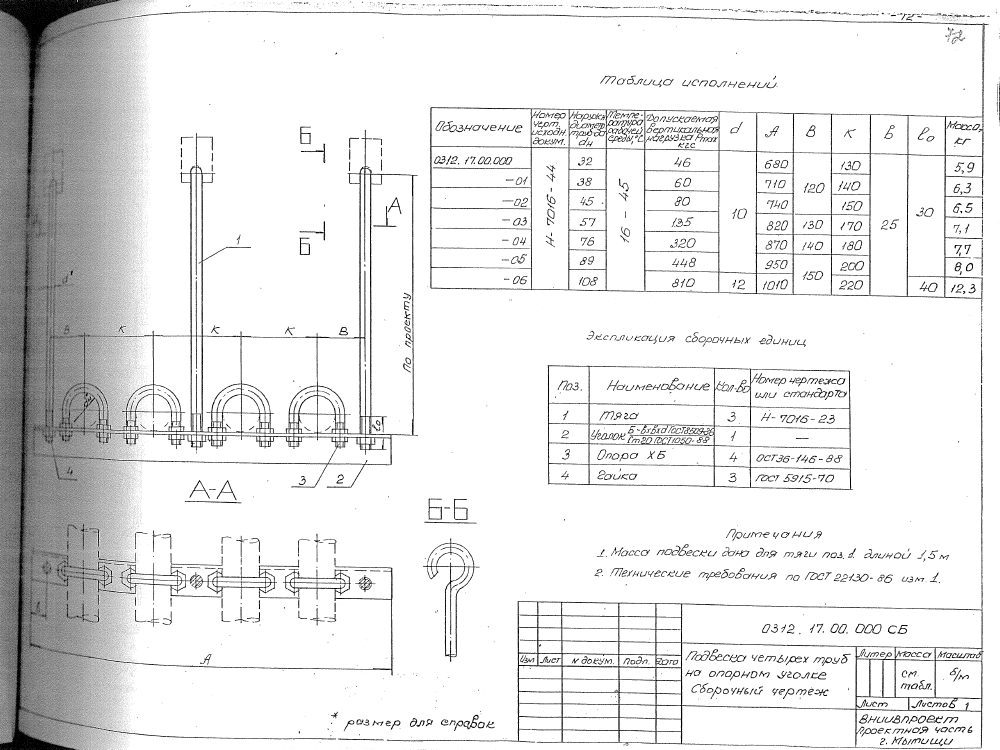 - 12 -
72
Таблица исполнений
Обозначение | Номер черт. исходн. докум. | Наружн. диаметр трубы dн | Температура рабочей среды, °С | Допускаемая вертикальная нагрузка Pmax кгс | d | А | В | К | b | l₀ | Масса, кг
0312. 17.00.000 | Н-7016-44 | 32 | 16 - 45 | 46 | 10 | 680 | 120 | 130 | 25 | 30 | 5,9
-01 | 38 | 60 | 710 | 140 | 6,3
-02 | 45 | 80 | 740 | 150 | 6,5
-03 | 57 | 135 | 820 | 130 | 170 | 7,1
-04 | 76 | 320 | 870 | 140 | 180 | 7,7
-05 | 89 | 448 | 950 | 150 | 200 | 8,0
-06 | 108 | 810 | 12 | 1010 | 220 | 40 | 12,3
Б
Б
А
1
По проекту
В К К К В
l₀
4 3 2
Экспликация сборочных единиц
Поз. | Наименование | Кол-во | Номер чертежа или стандарта
1 | Тяга | 3 | Н-7016-23
2 | Уголок | 1 | —
3 | Опора ХБ | 4 | ОСТ36-146-88
4 | Гайка | 3 | ГОСТ 5915-70
А-А
Б-Б
А
Примечания
1. Масса подвески дана для тяги поз. 1 длиной 1,5 м
2. Технические требования по ГОСТ 22130-86 изм. 1.
* размер для справок
0312. 17. 00. 000 СБ
Изм Лист N докум. Подп. Дата
Подвеска четырех труб
на опорном уголке
Сборочный чертеж
Литер Масса Масштаб
см. табл. б/м
Лист Листов 1
ВНИИВПРОЕКТ
проектная часть
г. Мытищи